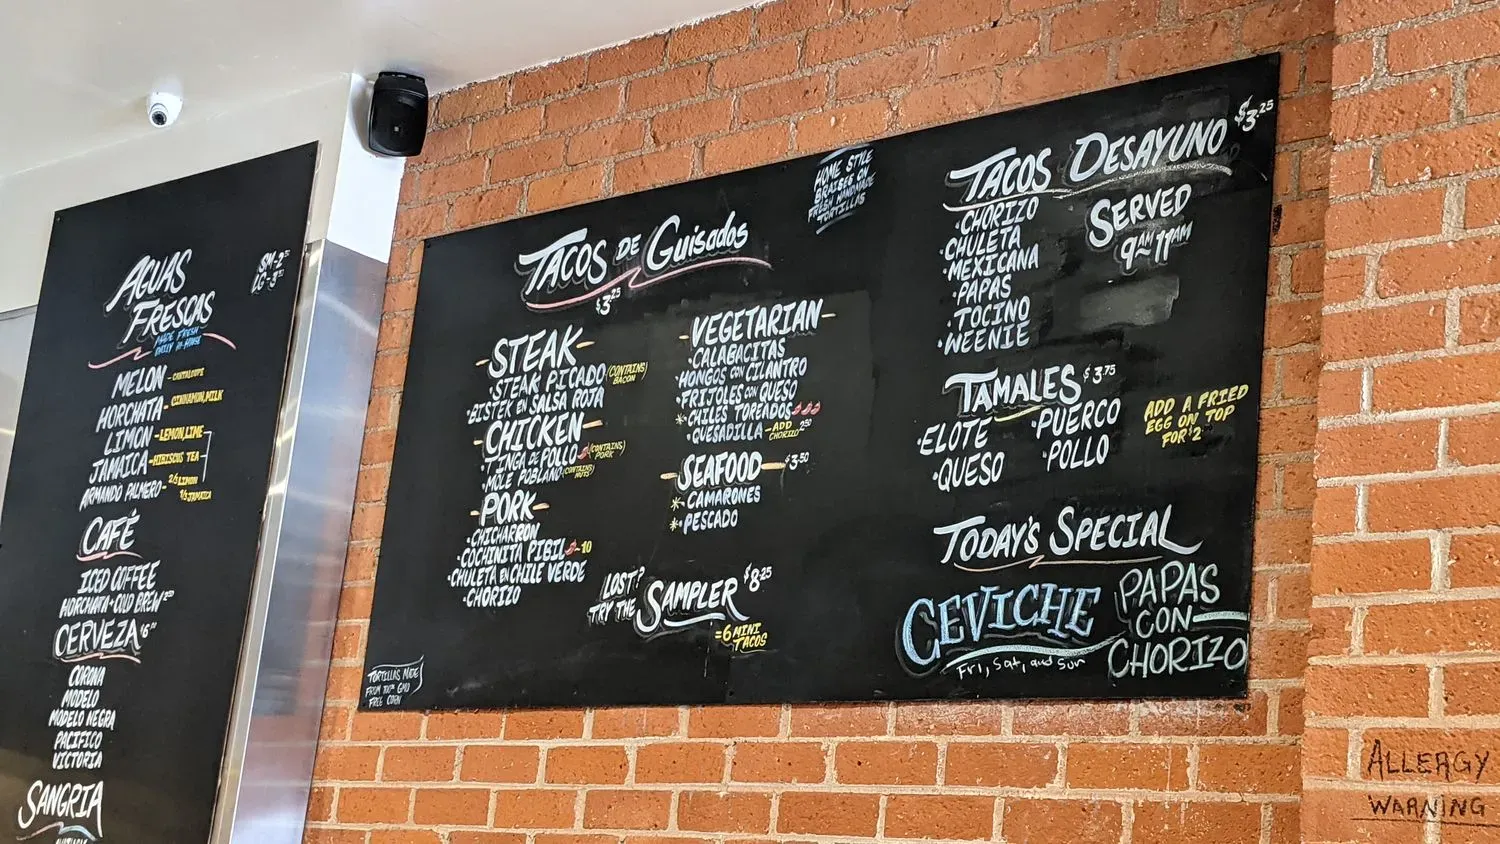 AGUAS
FRESCAS
SM-2
LG-3
MADE FRESH
DAILY IN-HOUSE
MELON - CANTALOUPE
HORCHATA - CINNAMON, MILK
LIMON - LEMON, LIME
JAMAICA - HIBISCUS TEA
ARMANDO PALMERO - 2/3 LIMON
1/3 JAMAICA
CAFÉ
ICED COFFEE
HORCHATA + COLD BREW
CERVEZA $6
CORONA
MODELO
MODELO NEGRA
PACIFICO
VICTORIA
SANGRIA
HOME STYLE
BRAISES ON
FRESH HANDMADE
TORTILLAS
TACOS DE GUISADOS
$3.25
-STEAK-
•STEAK PICADO (CONTAINS BACON)
•BISTEK EN SALSA ROJA
-CHICKEN-
•TINGA DE POLLO (CONTAINS PORK)
•MOLE POBLANO (CONTAINS NUTS)
-PORK-
•CHICHARRON
•COCHINITA PIBIL -10
•CHULETA EN CHILE VERDE
•CHORIZO
-VEGETARIAN-
•CALABACITAS
•HONGOS CON CILANTRO
•FRIJOLES CON QUESO
*•CHILES TOREADOS
•QUESADILLA - ADD CHORIZO 2.50
SEAFOOD - $3.50
*•CAMARONES
*•PESCADO
LOST?
TRY THE SAMPLER $8.25
=6 MINI
TACOS
TORTILLAS MADE
FROM 100% GMO
FREE CORN
TACOS DESAYUNO $3.25
•CHORIZO
•CHULETA
•MEXICANA
•PAPAS
•TOCINO
•WEENIE
SERVED
9AM-11AM
TAMALES $3.75
•ELOTE
•QUESO
•PUERCO
•POLLO
ADD A FRIED
EGG ON TOP
FOR $2
TODAY'S SPECIAL
CEVICHE
Fri, Sat, and Sun
PAPAS
CON
CHORIZO
ALLERGY
WARNING